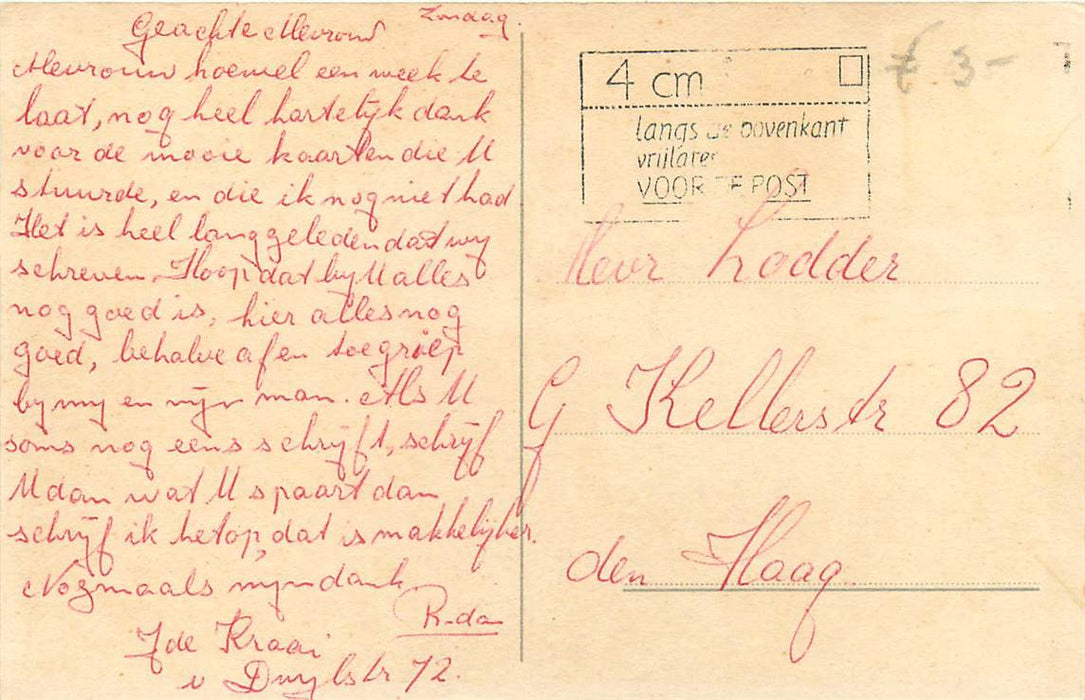 Zondag.
Geachte Mevrouw
Mevrouw hoewel een week te
laat, nog heel hartelijk dank
voor de mooie kaarten die U
stuurde, en die ik nog niet had.
Het is heel lang geleden dat wy
schreven. Hoop dat by U alles
nog goed is, hier alles nog
goed, behalve af en toe griep
by my en myn man. Als U
soms nog eens schrijft, schrijf
U dan wat U spaart dan
schrijf ik het op, dat is makkelijker.
Nogmaals myn dank
R-dam
J de Kraai
v Duylstr 72.
4 cm
langs de bovenkant
vrijlaten
VOOR DE POST
£ 3-
Mevr Lodder
G Kellerstr 82
den Haag.